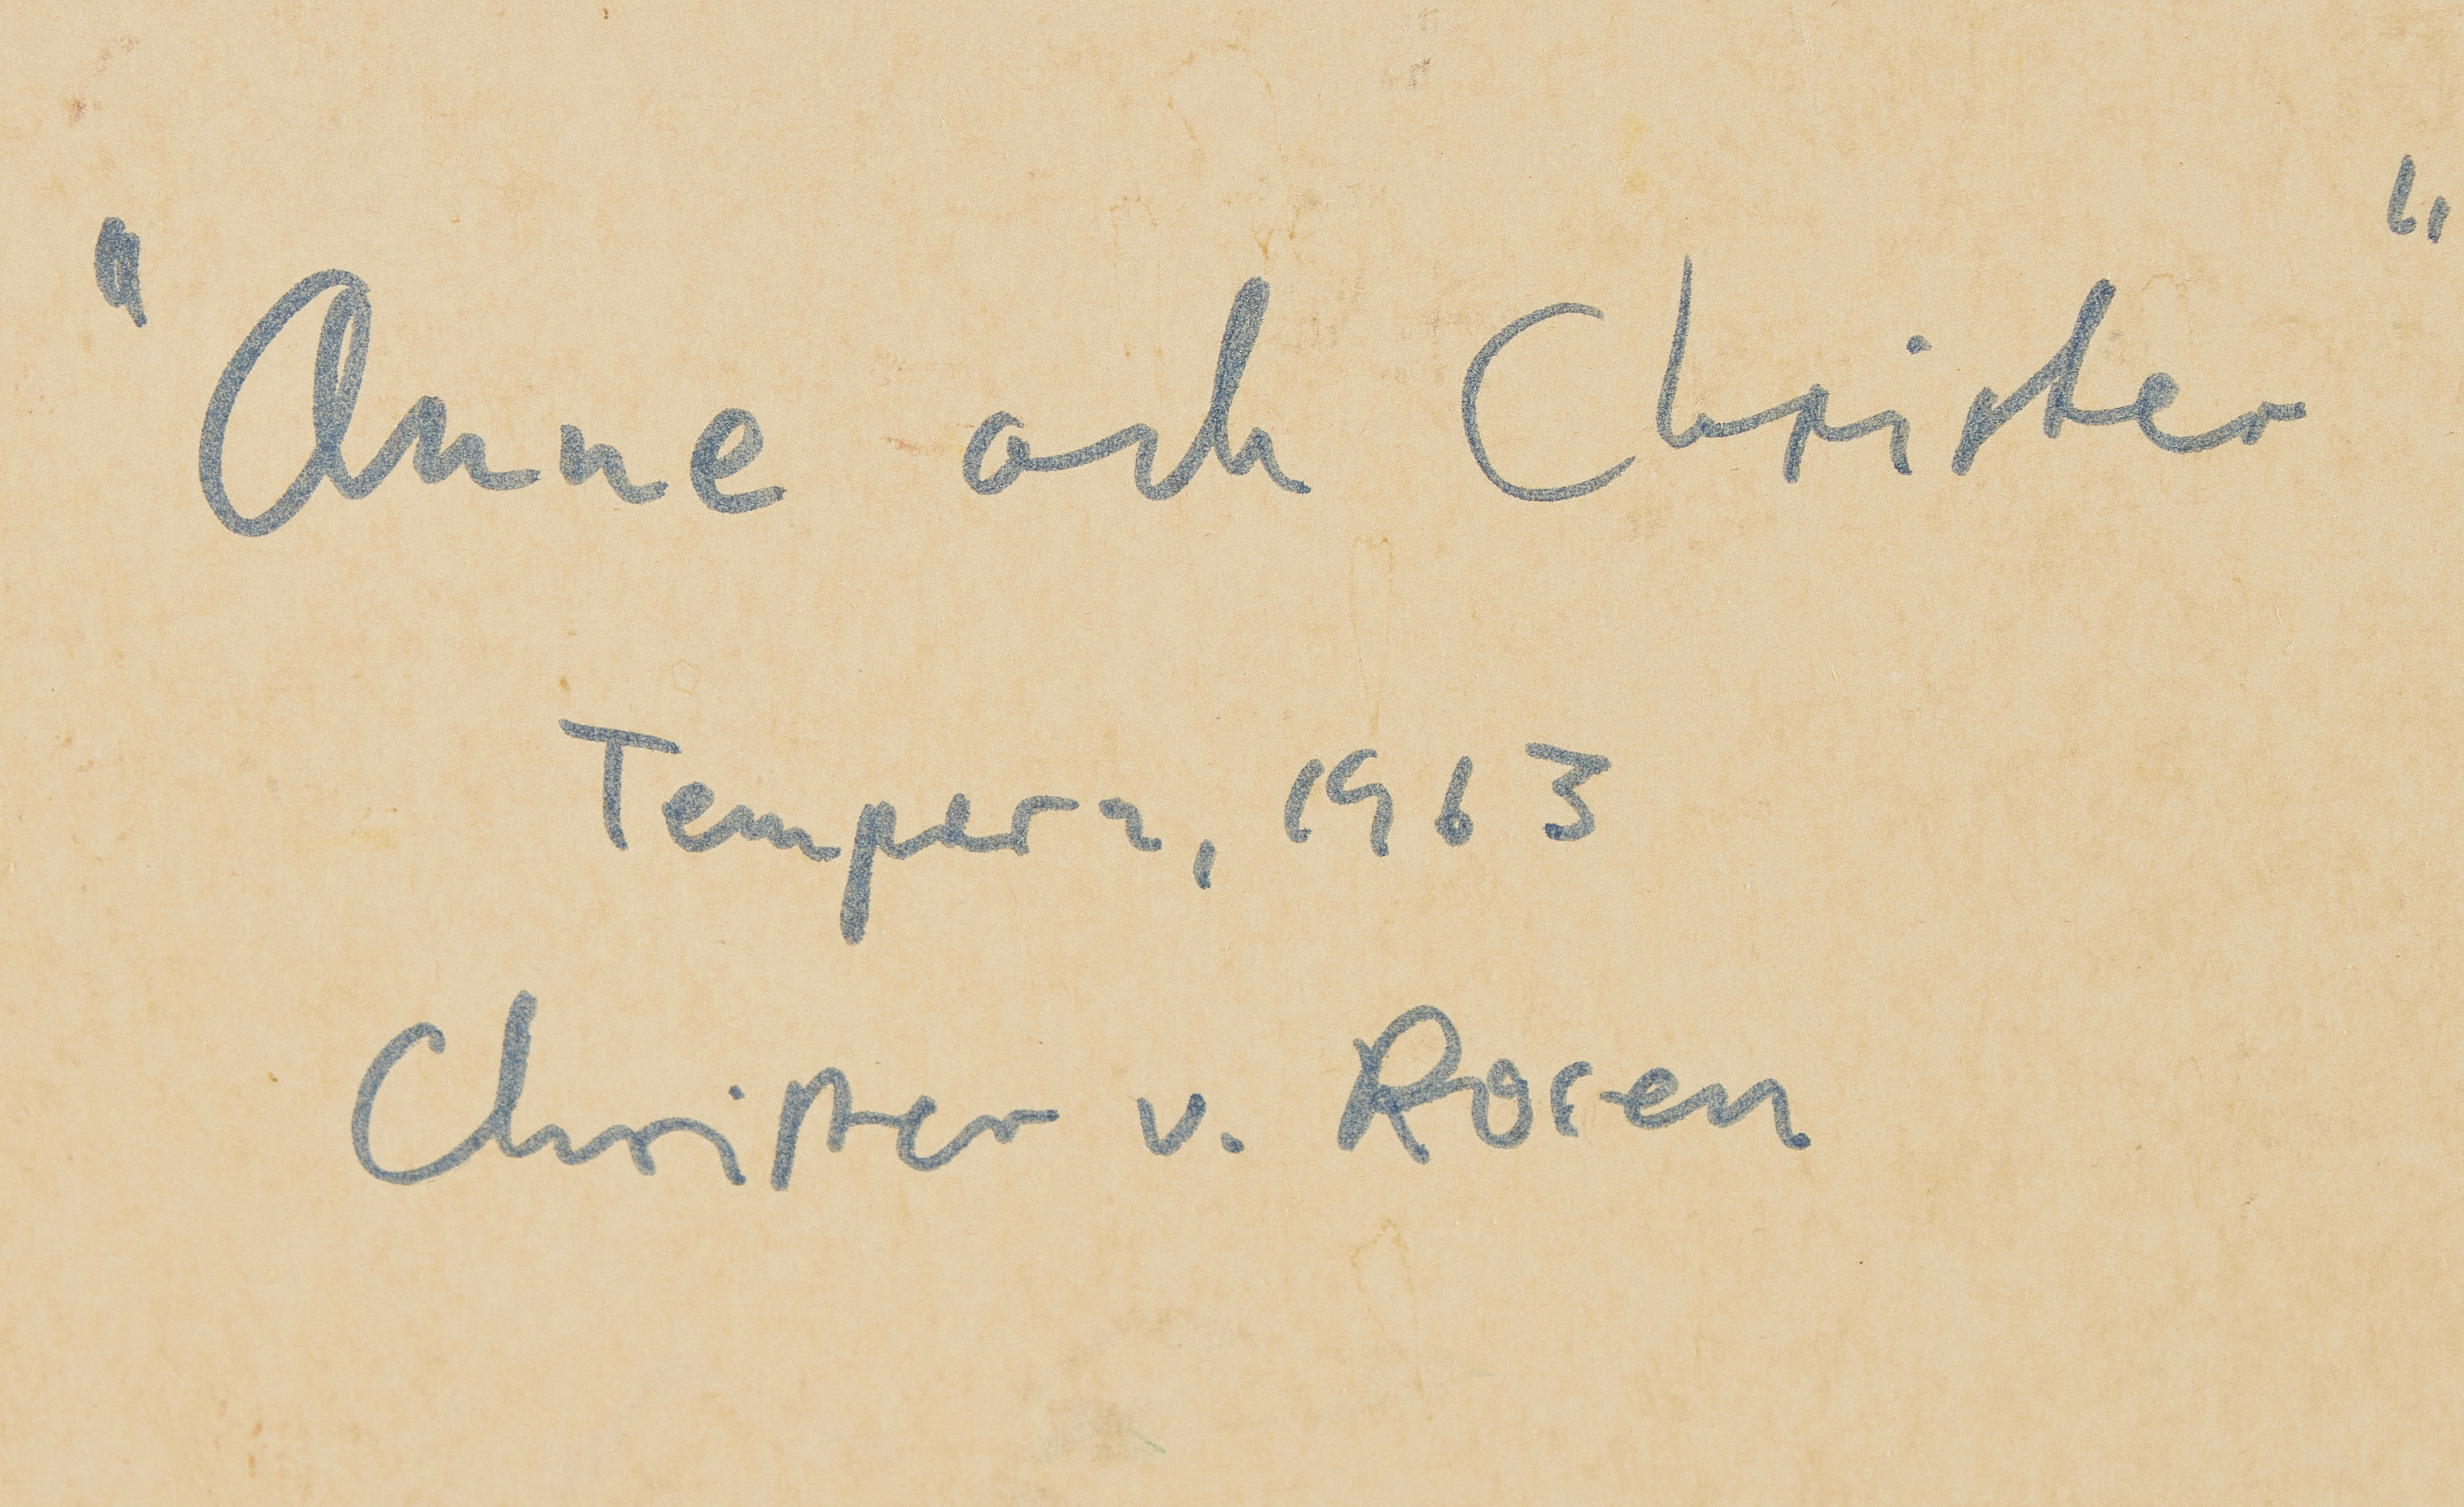 "Anne och Christer"
Tempera, 1963
Christer v. Rosen